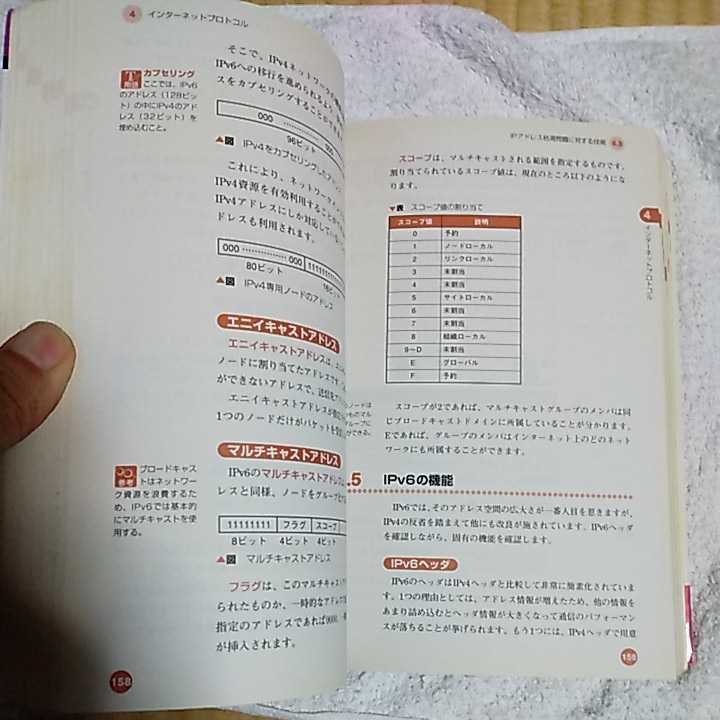 4 インターネットプロトコル
用語
カプセリング
ここでは、IPv6
のアドレス（128ビッ
ト）の中にIPv4のアド
レス（32ビット）を
埋め込むこと。
そこで、IPv4ネットワークの
IPv6への移行を進められるよう、
スをカプセリングすることが
000
96ビット
▲図 IPv4をカプセリングしたアドレス
これにより、ネットワーク
IPv4資源を有効利用することが
IPv4アドレスにしか対応してい
ドレスも利用されます。
000 000 11111111
80ビット 16ビ
▲図 IPv4専用ノードのアドレス
エニイキャストアドレス
エニイキャストアドレスは、
ノードに割り当てたアドレスです
ができないアドレスで、送信先
エニイキャストアドレスが
1つのノードだけがパケットを
マルチキャストアドレス
参考
ブロードキャス
トはネットワー
ク資源を浪費するた
め、IPv6では基本的
にマルチキャストを使
用する。
IPv6のマルチキャストアドレス
レスと同様、ノードをグループ
11111111 フラグ スコープ
8ビット 4ビット 4ビット
▲図 マルチキャストアドレス
フラグは、このマルチキャスト
られたものか、一時的な
指定のアドレスであれば0000、
が挿入されます。
158
IPアドレス枯渇問題に対する技術 4.5
スコープは、マルチキャストされる範囲を指定するものです。
割り当てられているスコープ値は、現在のところ以下のようにな
ります。
▼表 スコープ値の割り当て
スコープ値 説明
0 予約
1 ノードローカル
2 リンクローカル
3 未割当
4 未割当
5 サイトローカル
6 未割当
7 未割当
8 組織ローカル
9～D 未割当
E グローバル
F 予約
4
インターネットプロトコル
ノードは
ものマル
グループに
ができる。
スコープが2であれば、マルチキャストグループのメンバは同
じブロードキャストドメインに所属していることが分かります。
Eであれば、グループのメンバはインターネット上のどのネット
ワークにも所属することができます。
.5 IPv6の機能
IPv6では、そのアドレス空間の広大さが一番人目を惹きますが、
IPv4の反省を踏まえて他にも改良が施されています。IPv6ヘッダ
を確認しながら、固有の機能を確認します。
IPv6ヘッダ
IPv6のヘッダはIPv4ヘッダと比較して非常に簡素化されていま
す。1つの理由としては、アドレス情報が増えたため、他の情報を
あまり詰め込むとヘッダ情報が大きくなって通信のパフォーマン
スが落ちることが挙げられます。もう1つには、IPv4ヘッダで用意
159